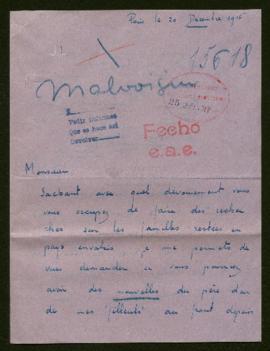 Paris le 20 Décembre 1916
15618
Malvoisin
Pedir informes
que se hace así
devolver
Fecho
e.a.e.
Monsieur
Sachant avec quel dévouement vous
vous occupez de faire des recher
ches sur les familles restées en
pays envahis je me permets de
vous demander si vous pouvez
avoir des nouvelles du père d'un
de mes "filleuls" au front depuis